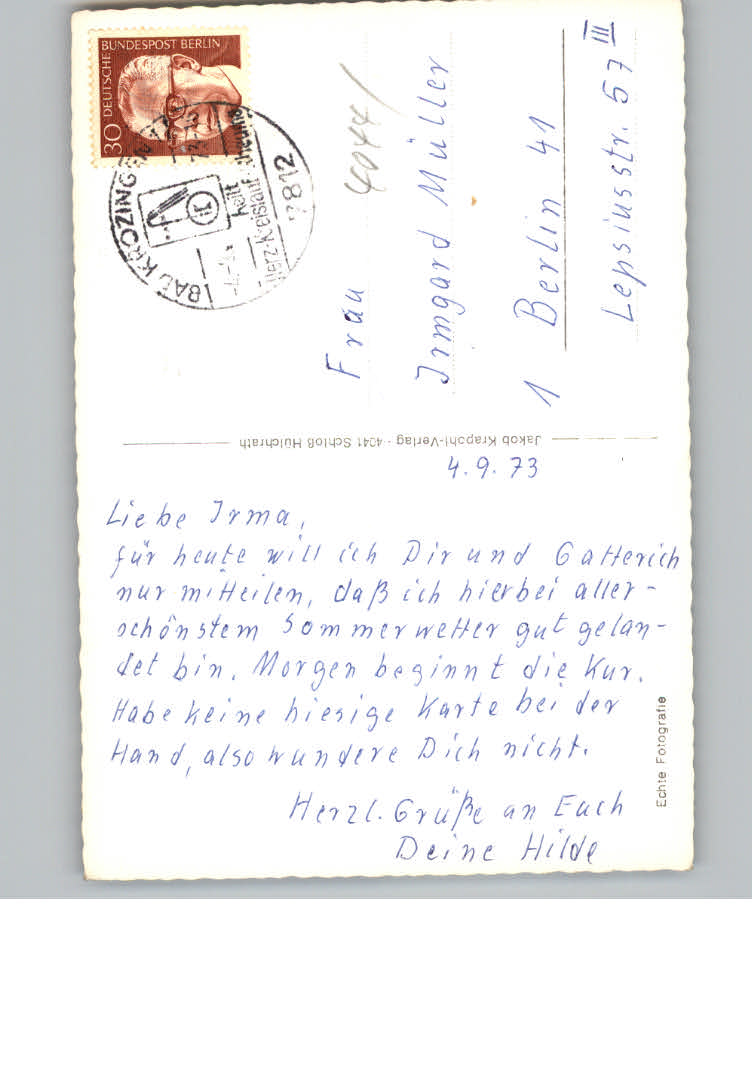 DEUTSCHE BUNDESPOST BERLIN
30
BAD KROZINGEN
7812
heilt
Herz-Kreislauf
4044/
Frau
Irmgard Müller
1 Berlin 41
Lepsiusstr. 57 III
Jakob Krapohl-Verlag · 4041 Schloß Hülchrath
4.9.73
Liebe Irma,
für heute will ich Dir und Gatterich
nur mitteilen, daß ich hierbei aller-
schönstem Sommerwetter gut gelan-
det bin. Morgen beginnt die Kur.
Habe keine hiesige Karte bei der
Hand, also wundere Dich nicht.
Herzl. Grüße an Euch
Deine Hilde
Echte Fotografie